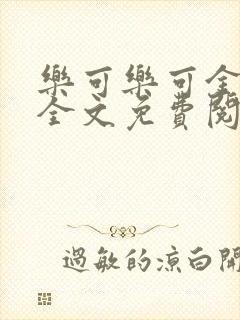 樂可樂可全
全文免費閱
過敏的涼白開